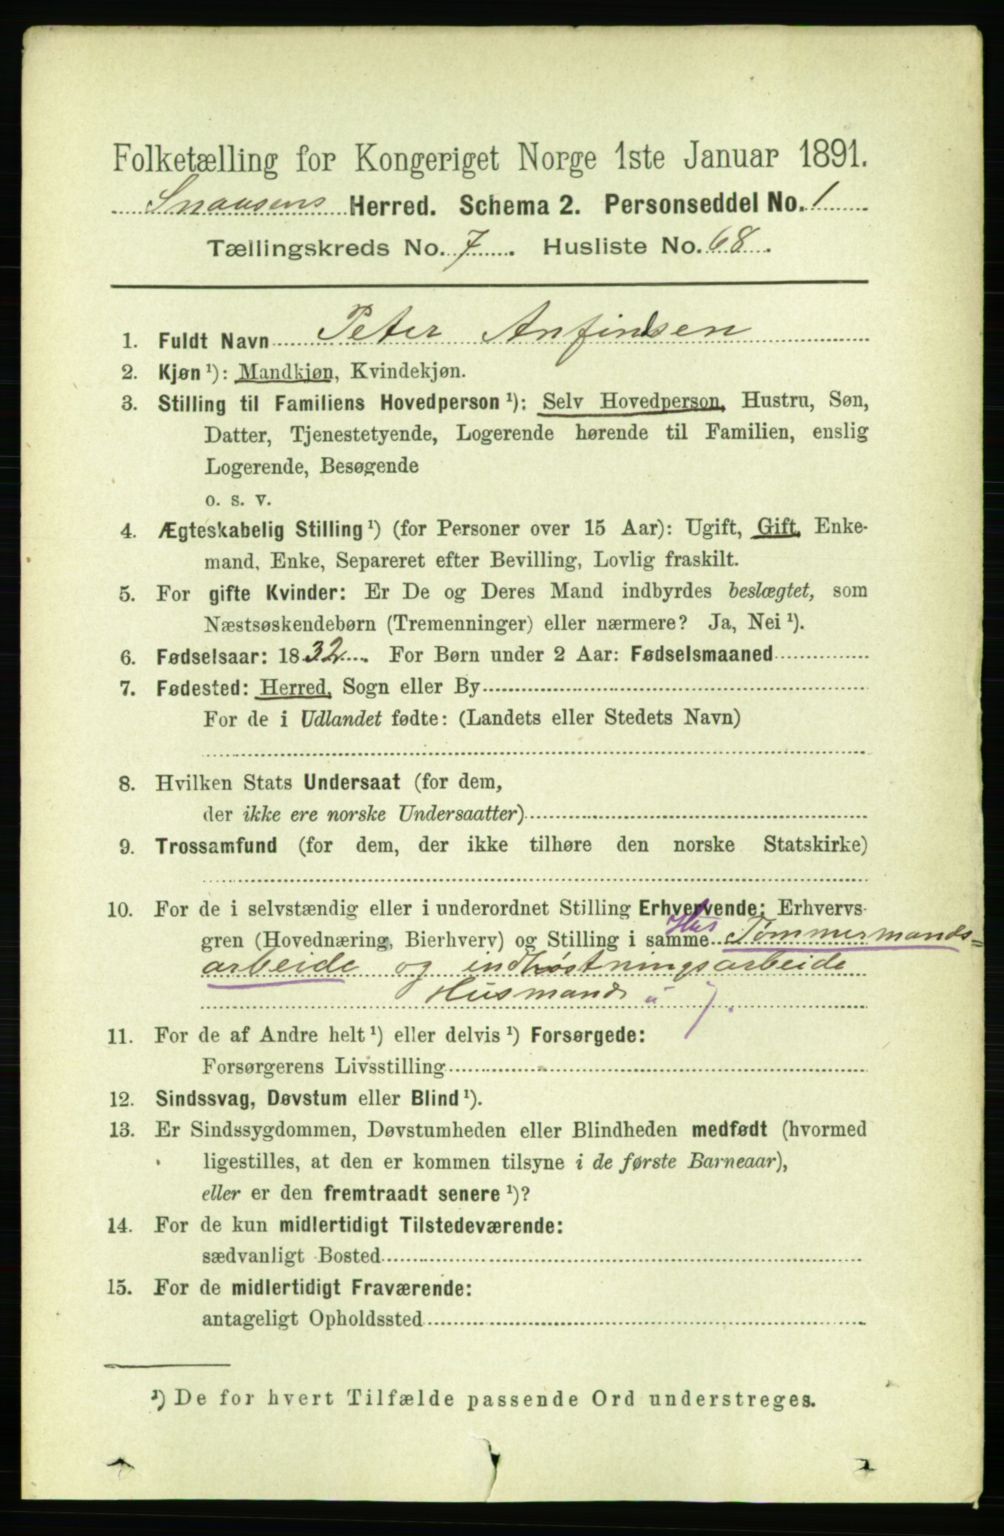 Folketælling for Kongeriget Norge 1ste Januar 1891.
Snaasens Herred. Schema 2. Personseddel No. 1
Tællingskreds No. 7. Husliste No. 68.
1. Fuldt Navn Peter Anfindsen
2. Kjøn ¹): Mandkjøn, Kvindekjøn.
3. Stilling til Familiens Hovedperson ¹): Selv Hovedperson, Hustru, Søn,
Datter, Tjenestetyende, Logerende hørende til Familien, enslig
Logerende, Besøgende
o. s. v.
4. Ægteskabelig Stilling ¹) (for Personer over 15 Aar): Ugift, Gift, Enke-
mand, Enke, Separeret efter Bevilling, Lovlig fraskilt.
5. For gifte Kvinder: Er De og Deres Mand indbyrdes beslægtet, som
Næstsøskendebørn (Tremenninger) eller nærmere? Ja, Nei ¹).
6. Fødselsaar: 1832. For Børn under 2 Aar: Fødselsmaaned
7. Fødested: Herred, Sogn eller By
For de i Udlandet fødte: (Landets eller Stedets Navn)
8. Hvilken Stats Undersaat (for dem,
der ikke ere norske Undersaatter)
9. Trossamfund (for dem, der ikke tilhøre den norske Statskirke)
10. For de i selvstændig eller i underordnet Stilling Erhvervende: Erhvervs-
gren (Hovednæring, Bierhverv) og Stilling i samme Hus Tømmermands=
arbeide og indhøstningsarbeide
Husmand
11. For de af Andre helt ¹) eller delvis ¹) Forsørgede:
Forsørgerens Livsstilling
12. Sindssvag, Døvstum eller Blind ¹).
13. Er Sindssygdommen, Døvstumheden eller Blindheden medfødt (hvormed
ligestilles, at den er kommen tilsyne i de første Barneaar),
eller er den fremtraadt senere ¹)?
14. For de kun midlertidigt Tilstedeværende:
sædvanligt Bosted
15. For de midlertidigt Fraværende:
antageligt Opholdssted
¹) De for hvert Tilfælde passende Ord understreges.